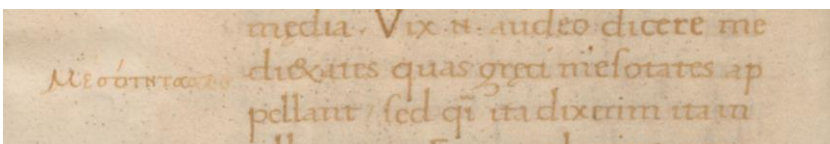 mędia. Vix n̄ audeo dicere me
Μεσότητασ
di&ates quas gręci mesotates ap
pellant sed qı̄ ita dixerim ita in